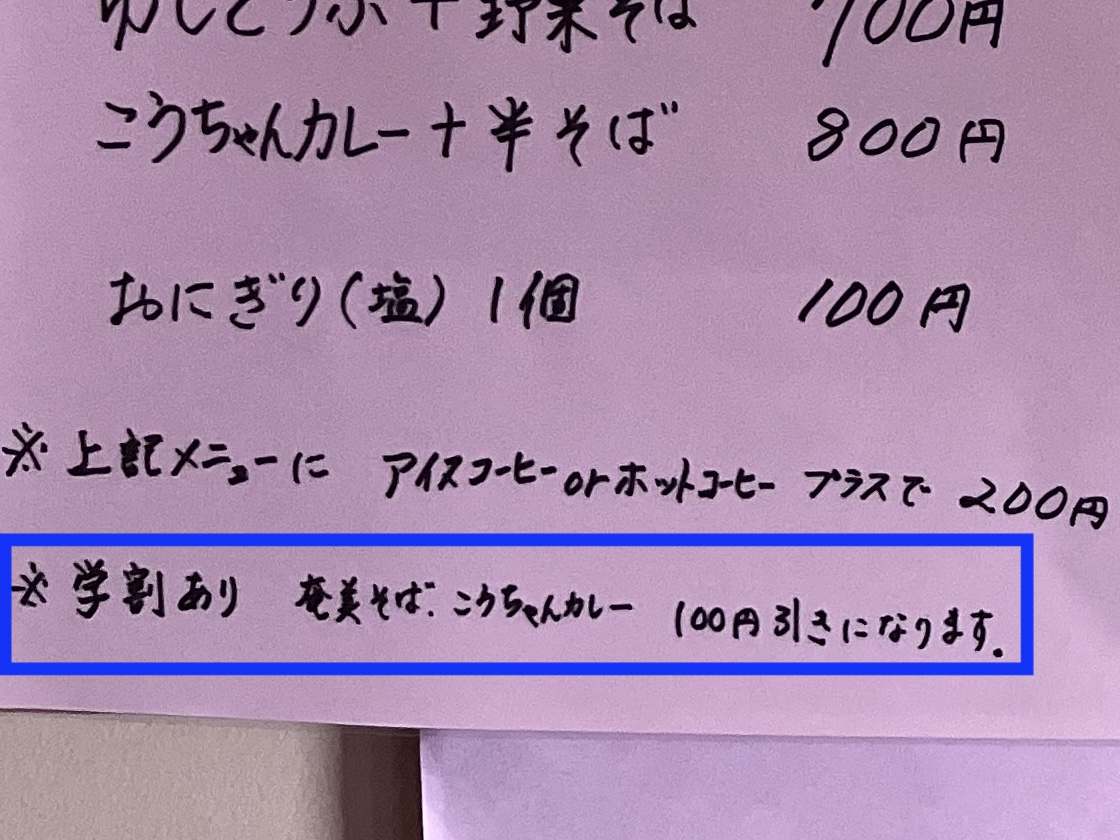 ゆしどうふ+野菜そば 700円
こうちゃんカレー+半そば 800円
おにぎり(塩) 1個 100円
※上記メニューに アイスコーヒーorホットコーヒー プラスで 200円
※学割あり 奄美そば.こうちゃんカレー 100円引きになります.